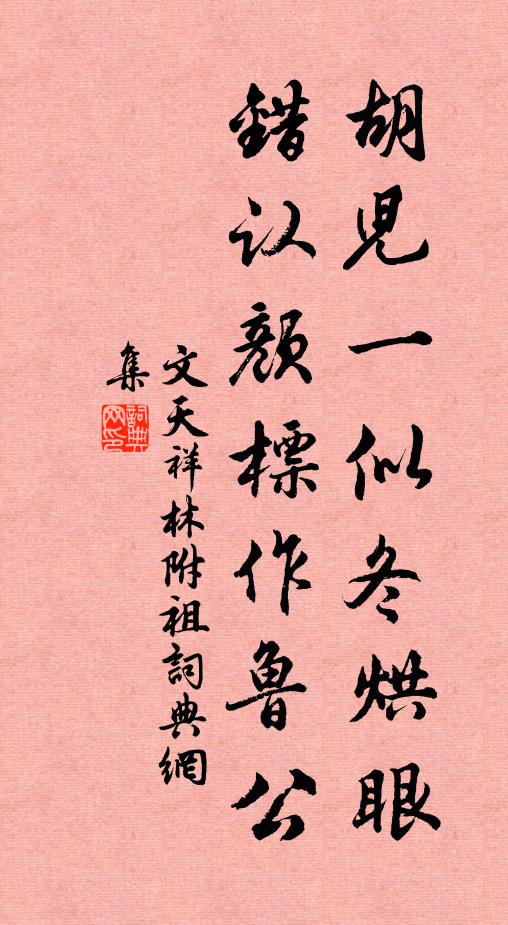 胡児一似冬烘眼
錯认顔標作魯公
文天祥林附祖詞典網
集
詞典
网印